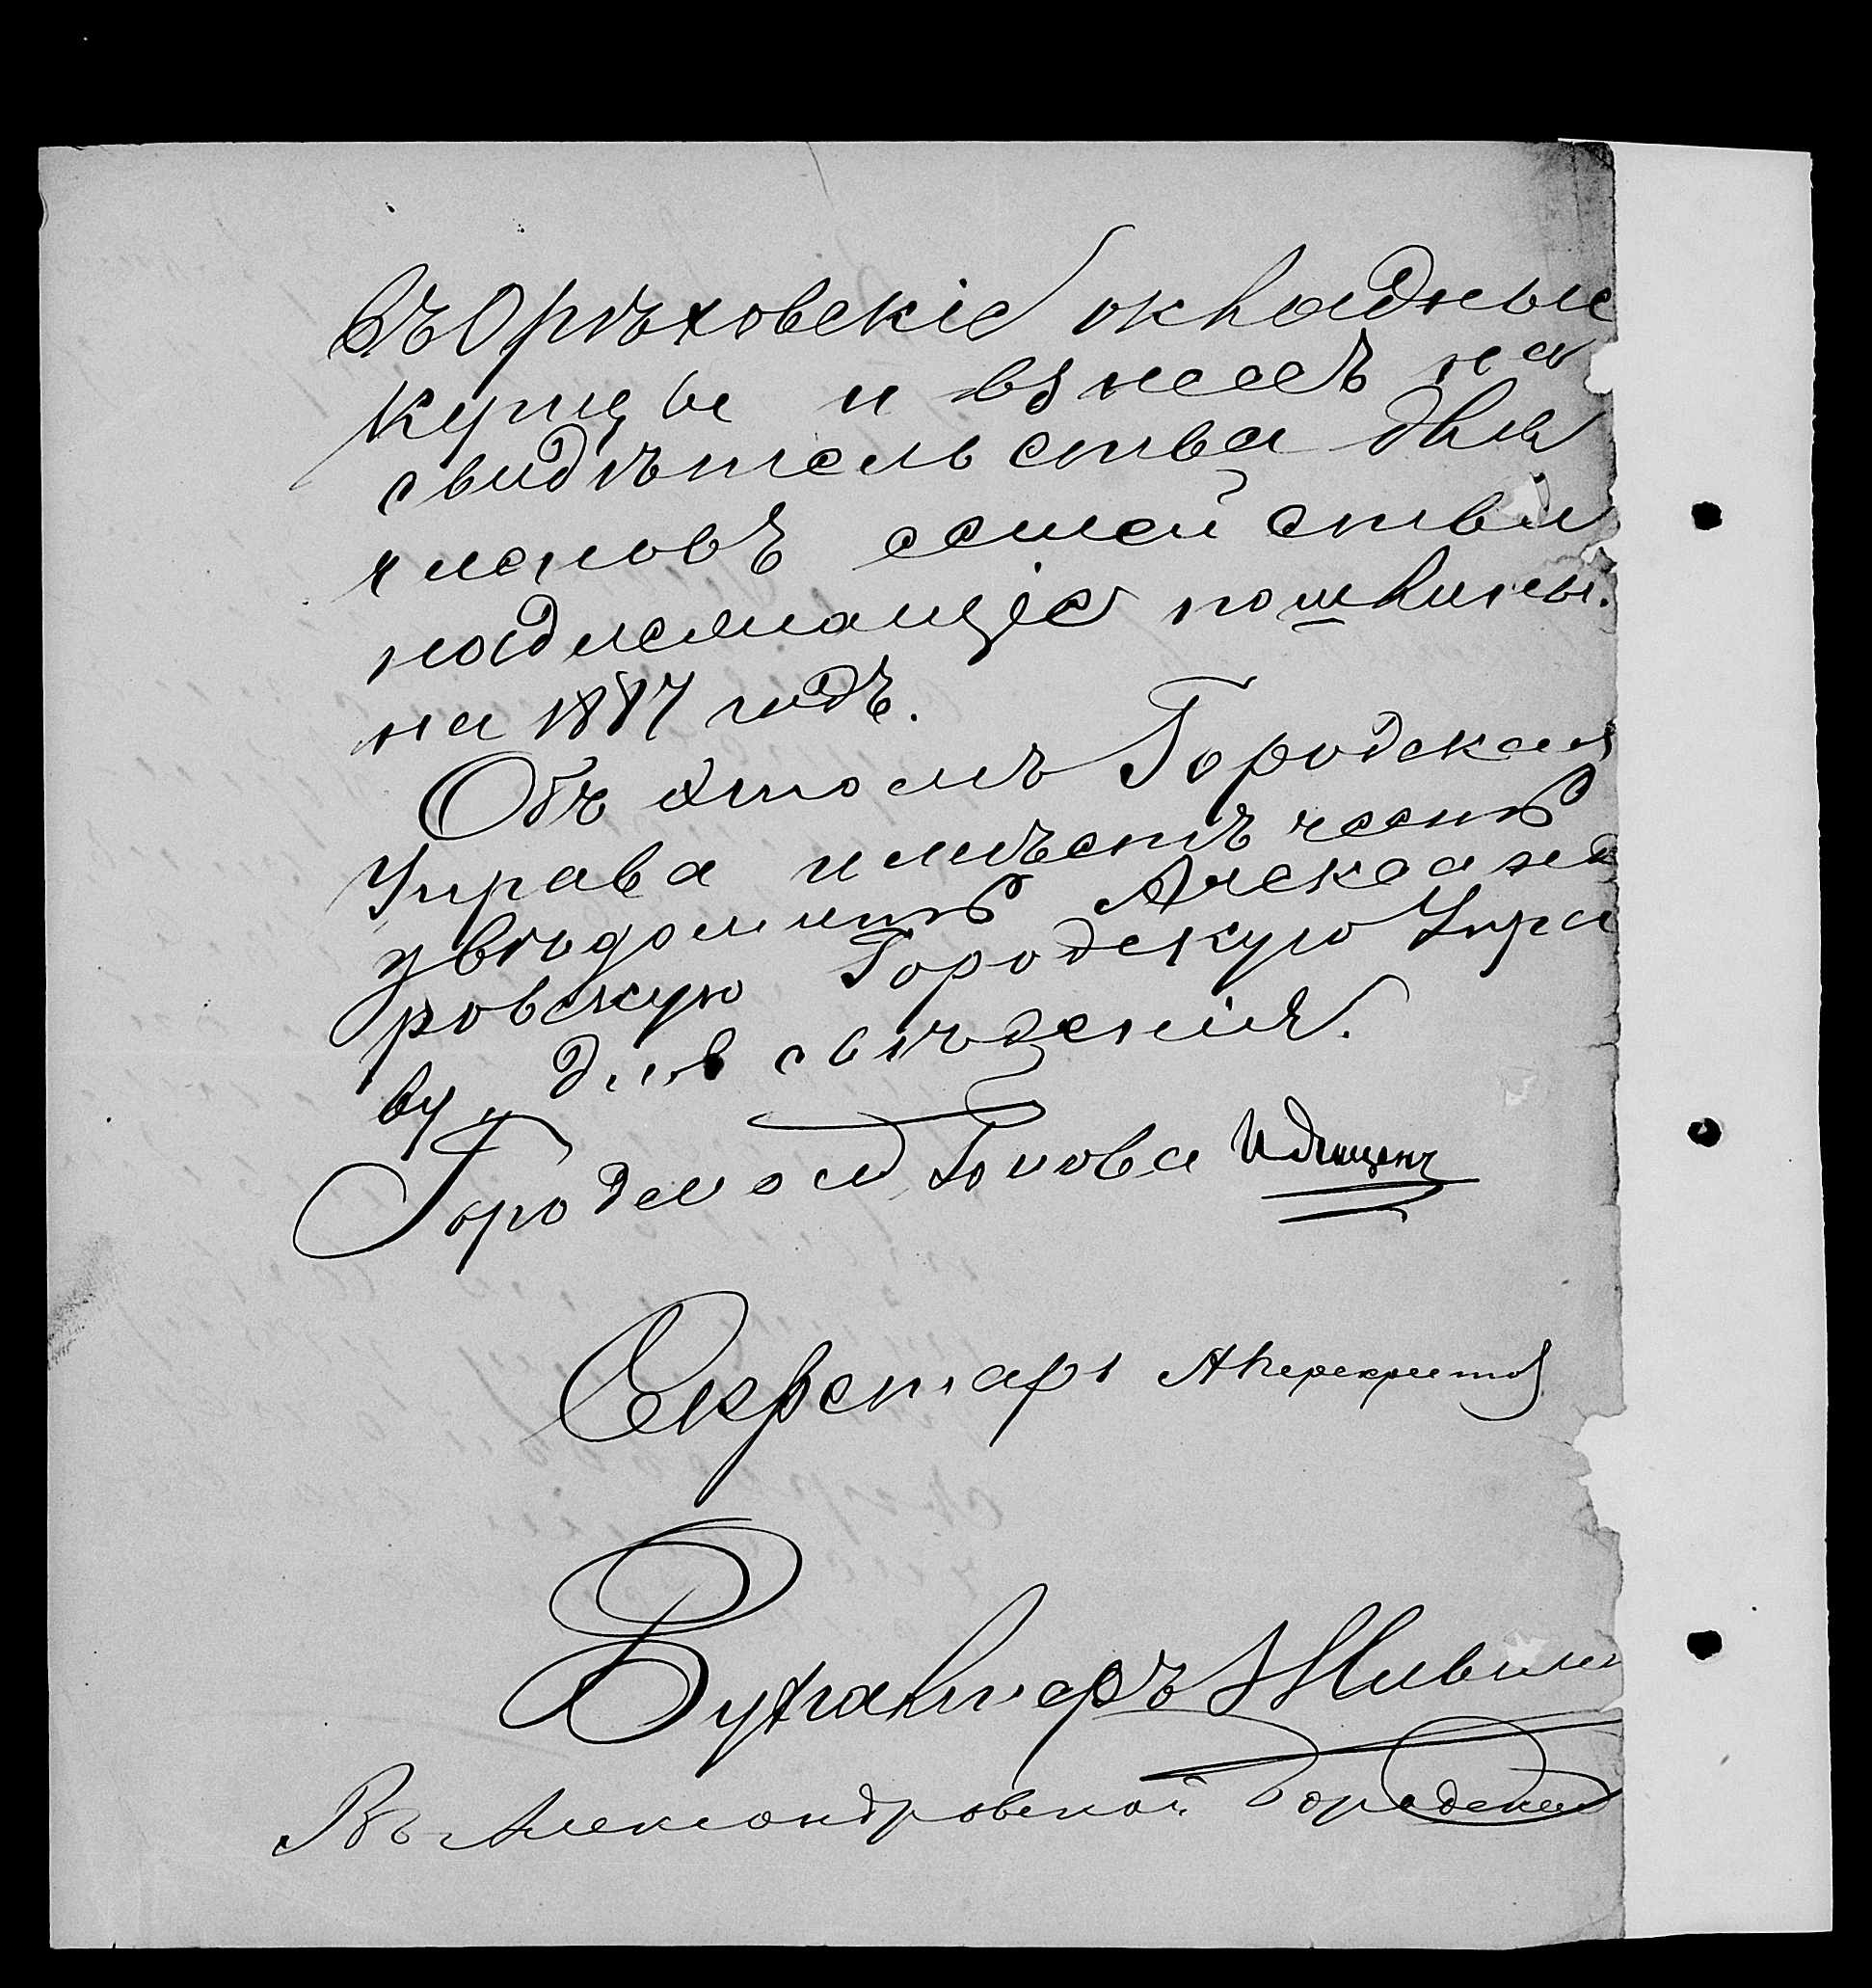 въ Орѣховскіе окладные
купцы и взнесъ на
свидѣтельства для
членовъ семейства
надлежащіе пошлины.
на 1887 годъ.
Объ этомъ Городская
Управа имѣетъ честь
увѣдомить Александ
ровскую Городскую Упра
ву для свѣденія.
Городской Голова
Секретарь А Перекрестов
Бухгалтеръ
Въ Александровской Городской